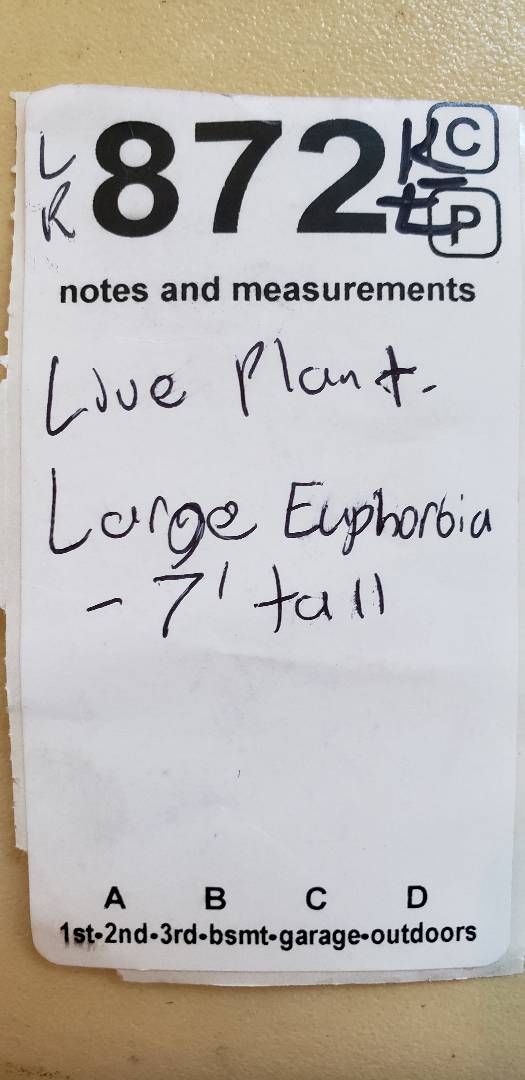 L 872 K C
R E P
notes and measurements
Live Plant.
Large Euphorbia
- 7' tall
A B C D
1st-2nd-3rd-bsmt-garage-outdoors